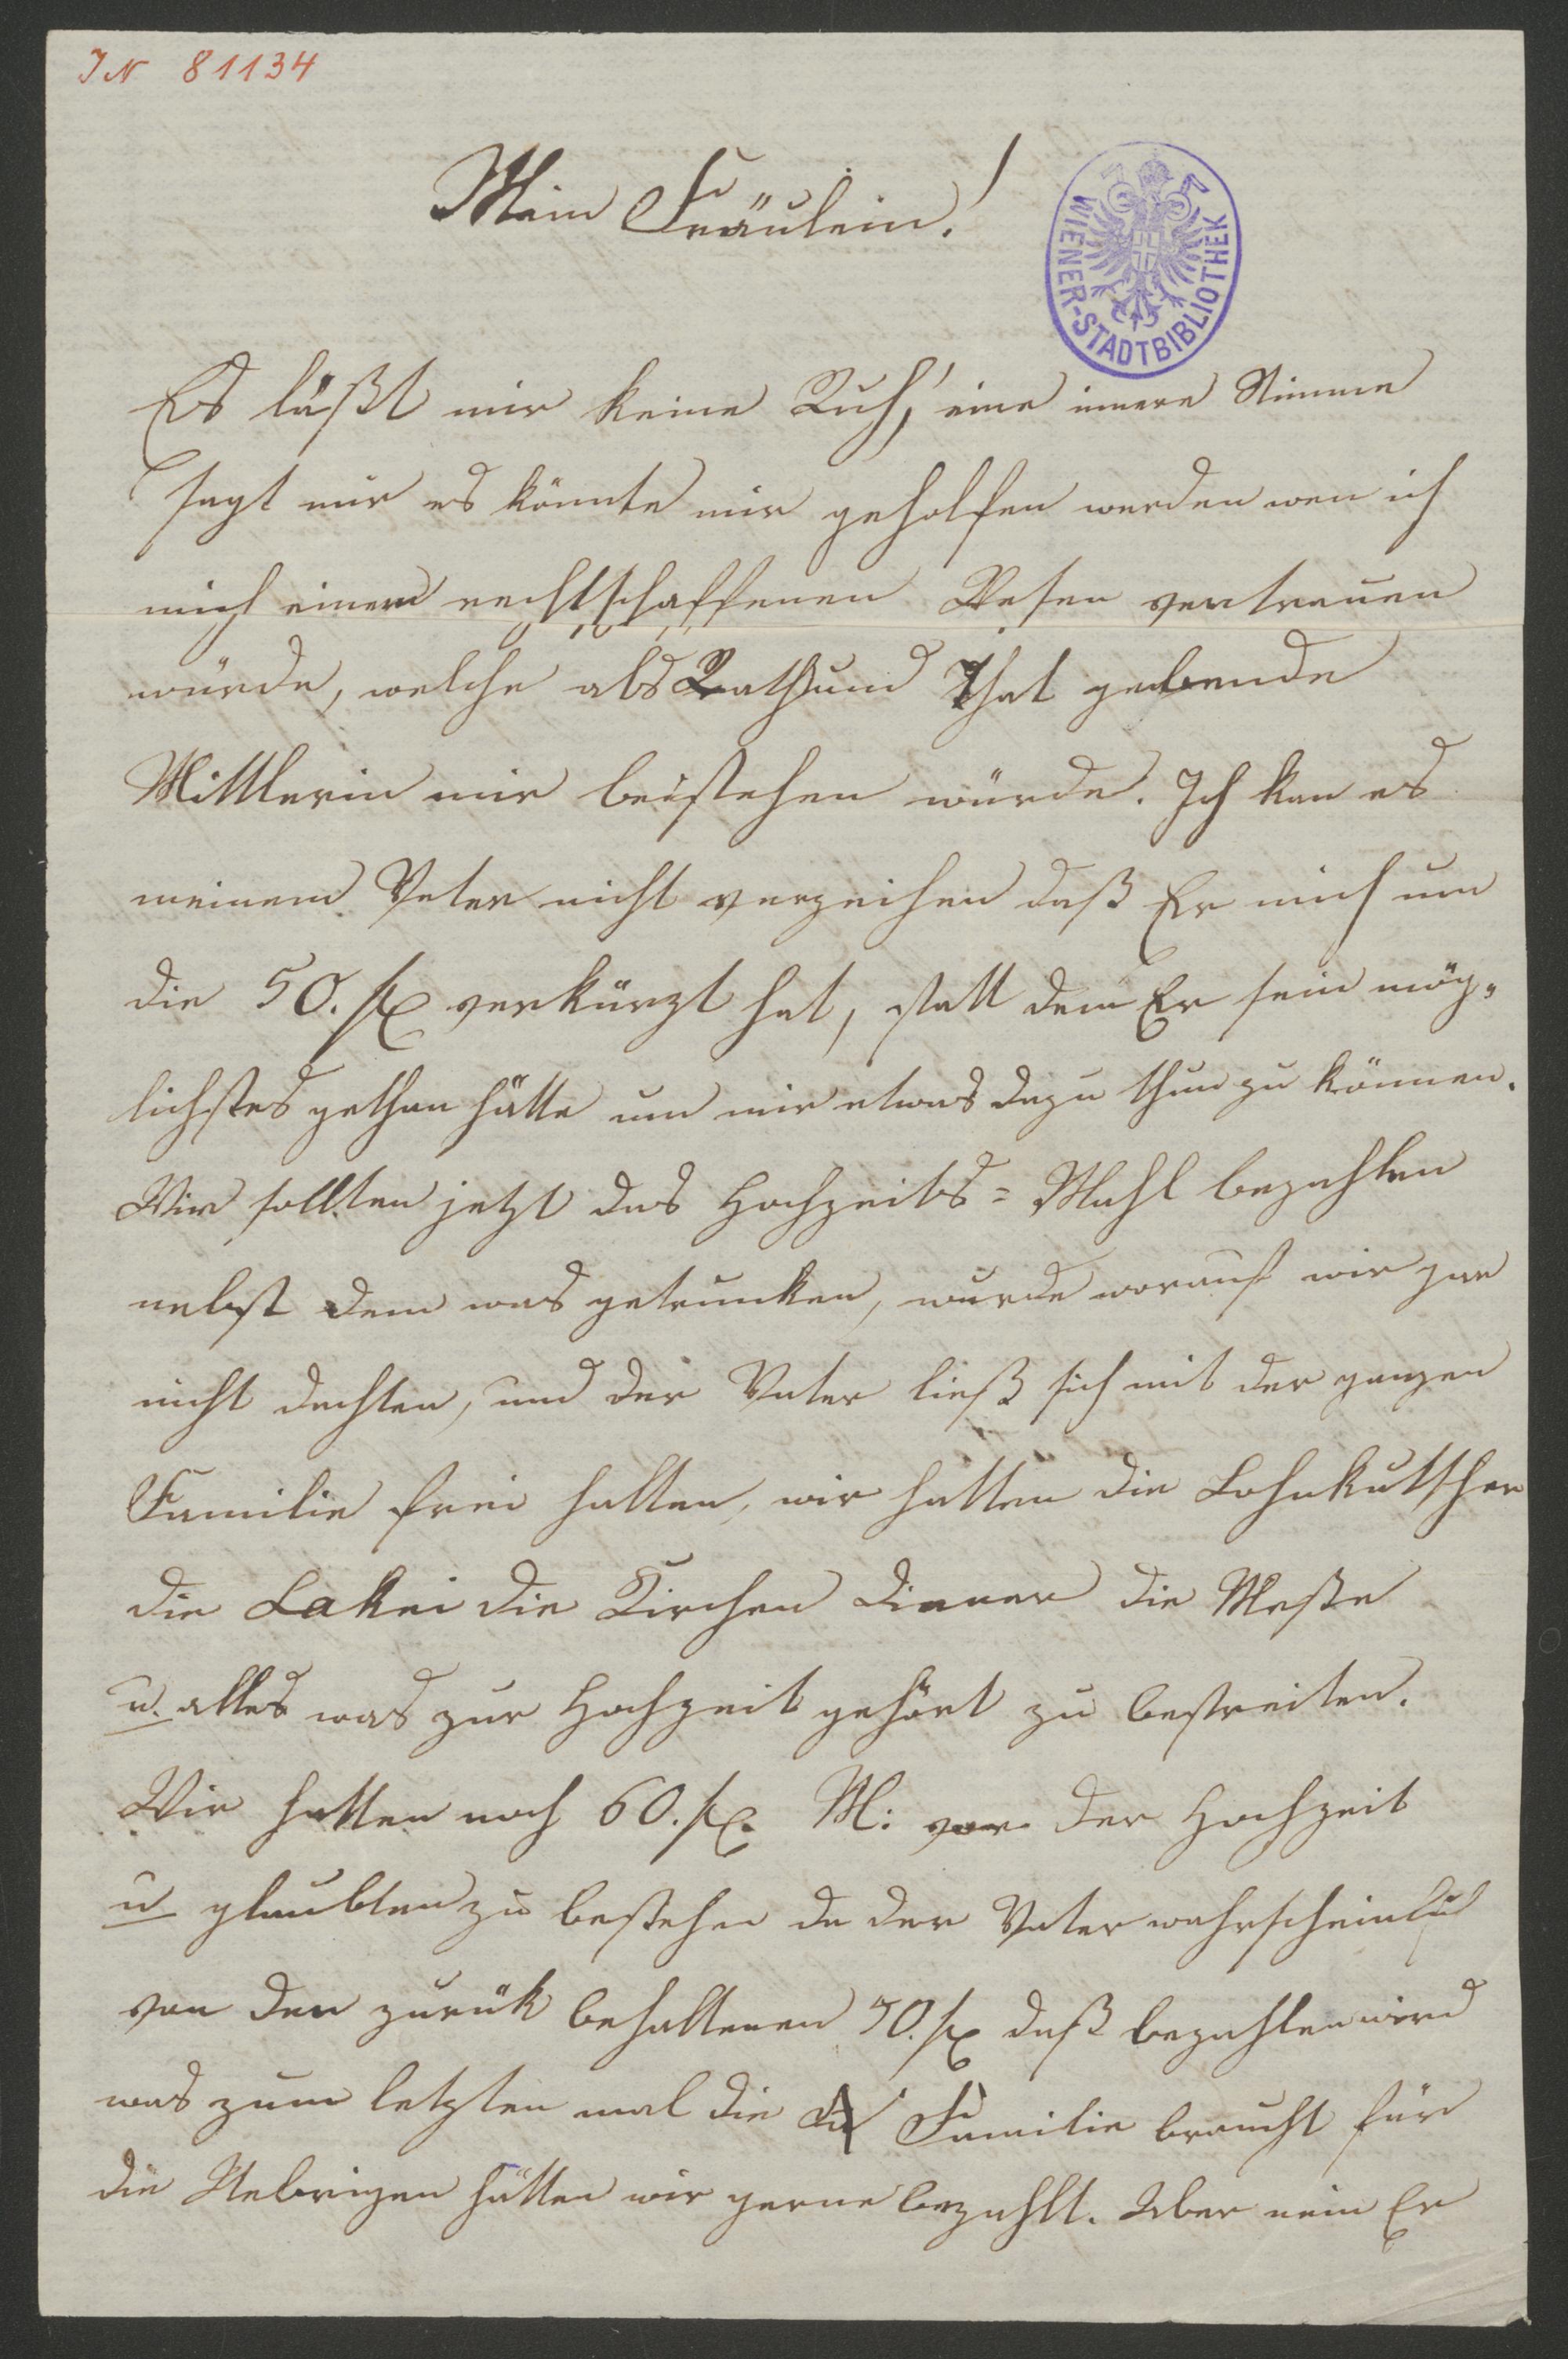 IN 81134
Mein Fräulein!
WIENER-STADTBIBLIOTHEK
Es läßt mir keine Ruh, eine innere Stimme
sagt mir es könnte mir geholfen werden wen ich
mich einem rechtschaffenen Wesen vertrauen
würde, welche als Rath und That gebende
Mittlerin mir beistehen würde. Ich kan es
meinem Vater nicht verzeihen daß Er mich um
die 50. fl verkürzt hat, statt dem Er sein mög„
lichstes gethan hätte um mir etwas dazu thun zu können.
Wir sollten jetzt das Hochzeits=Mahl bezahlen
nebst dem was getrunken, wurde worauf wir gar
nicht dachten, und der Vater ließ sich mit der ganzen
Familie frei halten, wir hatten die Lohnkutscher
die Lakei die Kirchen Diener die Meße
u. alles was zur Hochzeit gehört zu bestreiten.
Wir hatten noch 60. fl. M: vor der Hochzeit
u glaubten zu bestehen da der Vater wahrscheinlich
von den zurük behaltenen 50. fl daß bezahlen wird
was zum letzten mal die Familie braucht für
die Uebrigen hätten wir gerne bezahlt. Aber nein Er